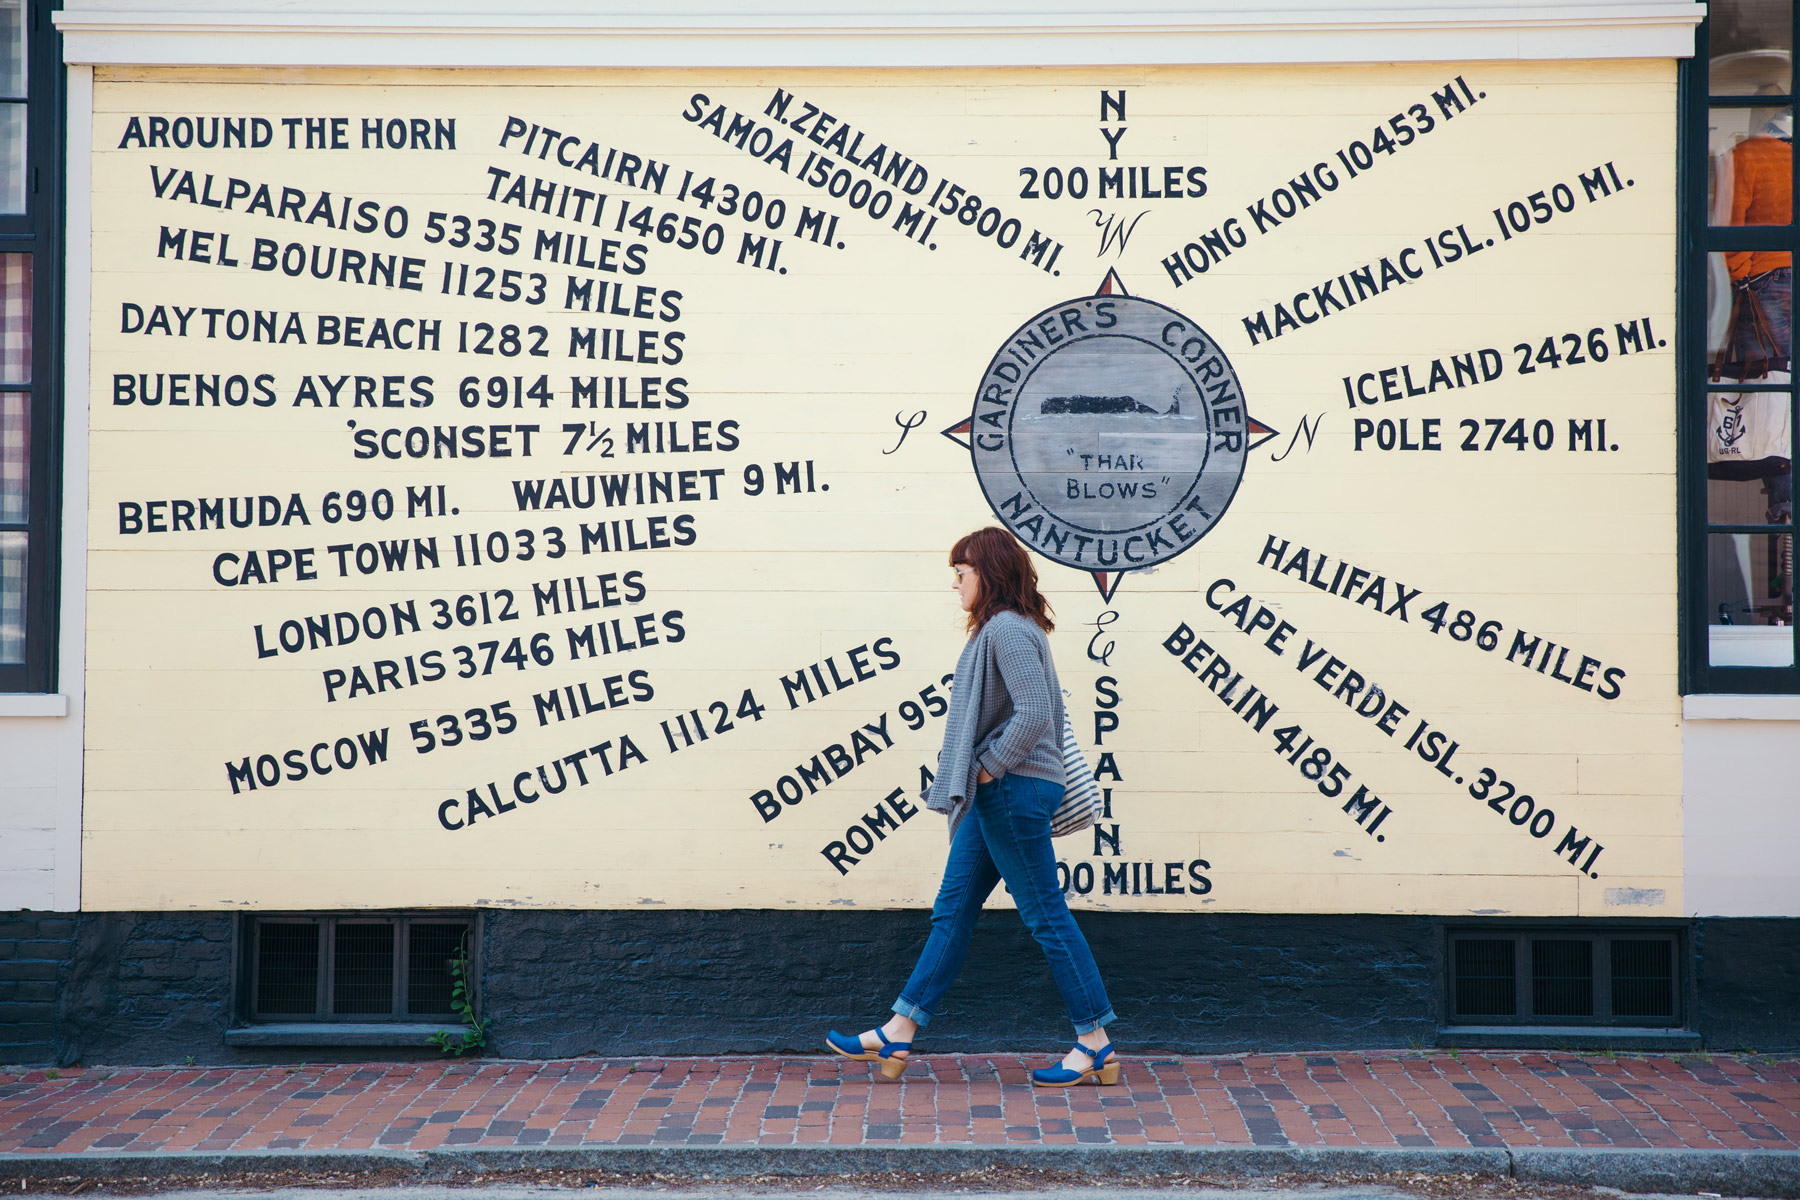 AROUND THE HORN
VALPARAISO 5335 MILES
MELBOURNE 11253 MILES
DAYTONA BEACH 1282 MILES
BUENOS AYRES 6914 MILES
'SCONSET 7½ MILES
BERMUDA 690 MI.
WAUWINET 9 MI.
CAPE TOWN 11033 MILES
LONDON 3612 MILES
PARIS 3746 MILES
MOSCOW 5335 MILES
CALCUTTA 11124 MILES
BOMBAY
ROME
PITCAIRN 14300 MI.
TAHITI 14650 MI.
SAMOA 15000 MI.
N.ZEALAND 15800 MI.
NY
200 MILES
W
S
N
E
GARDINER'S CORNER
"THAR
BLOWS"
NANTUCKET
SPAIN
MILES
HONG KONG 10453 MI.
MACKINAC ISL. 1050 MI.
ICELAND 2426 MI.
POLE 2740 MI.
HALIFAX 486 MILES
CAPE VERDE ISL. 3200 MI.
BERLIN 4185 MI.